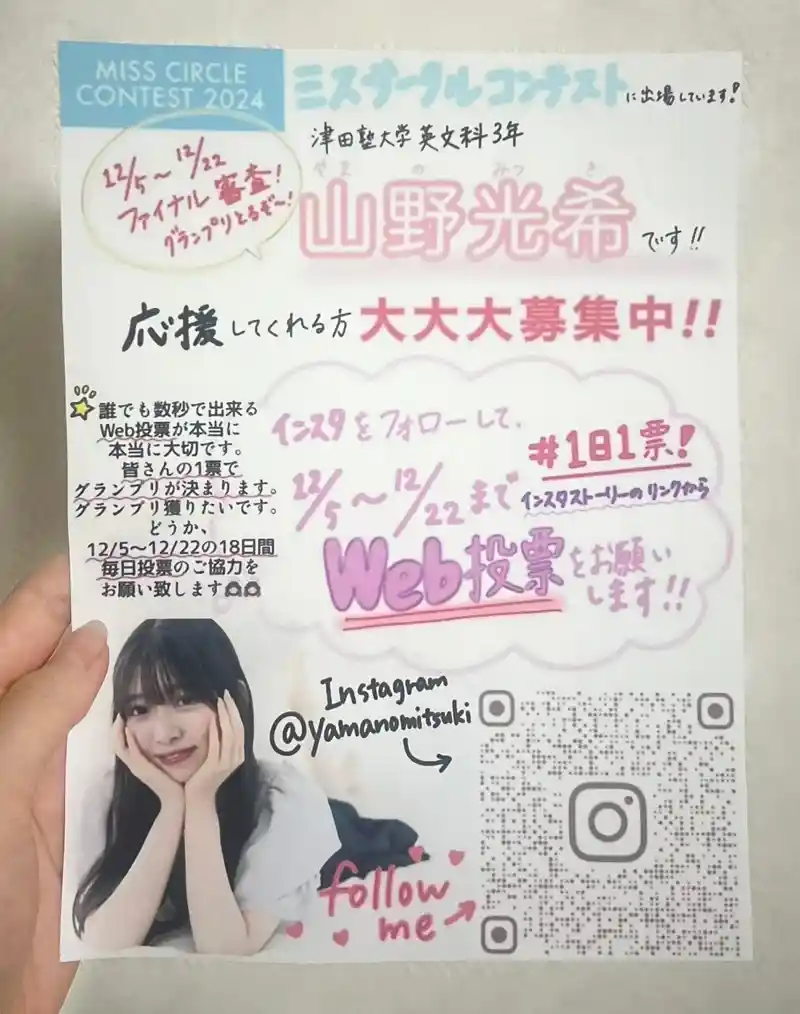 MISS CIRCLE
CONTEST 2024
ミスサークルコンテストに出場しています!
津田塾大学 英文科3年
やまのみつき
山野光希です!!
12/5〜12/22
ファイナル審査!
グランプリとるぞ〜!
応援してくれる方大大大募集中!!
誰でも数秒で出来る
Web投票が本当に
本当に大切です。
皆さんの1票で
グランプリが決まります。
グランプリ獲りたいです。
どうか、
12/5〜12/22の18日間
毎日投票のご協力を
お願い致します
インスタをフォローして、
12/5〜12/22まで
#1日1票!
インスタストーリーのリンクから
Web投票をお願い
します!!
Instagram
@yamanomitsuki
follow
me